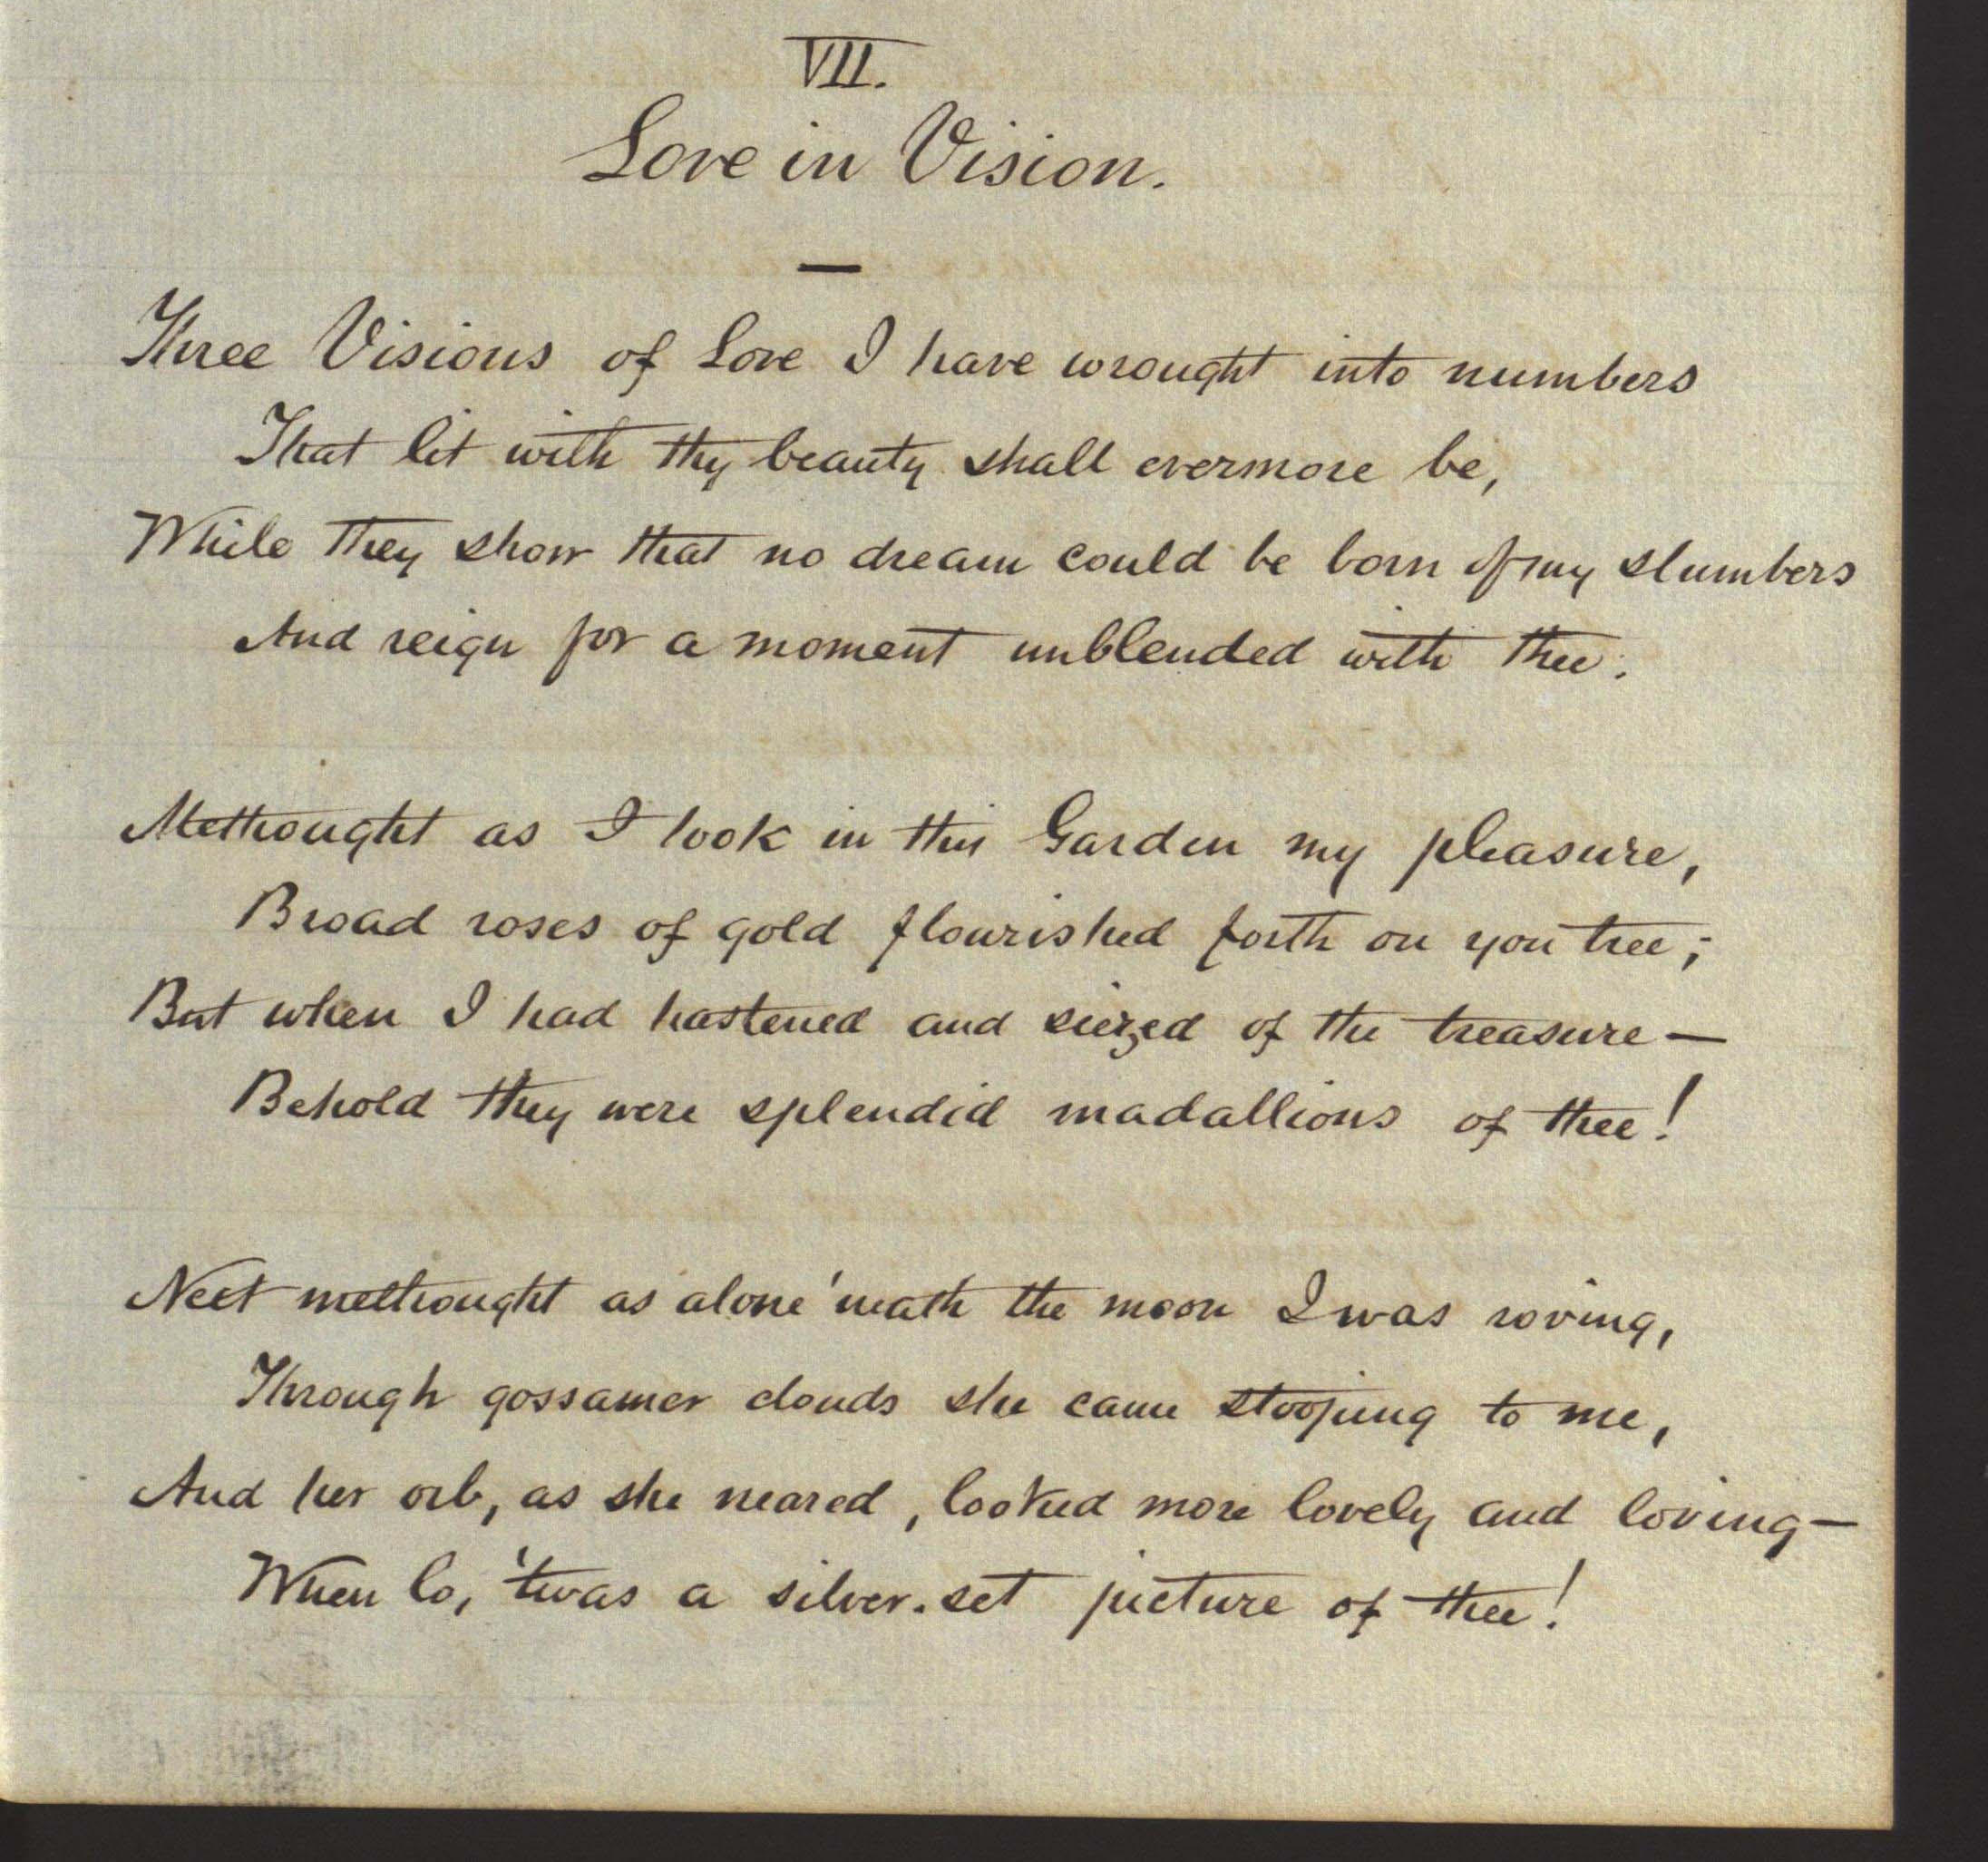 VII.
Love in Vision.
Three Visions of Love I have wrought into numbers
That lit with thy beauty shall evermore be,
While they show that no dream could be born of my slumbers
And reign for a moment unblended with thee.
Methought as I took in this Garden my pleasure,
Broad roses of gold flourished forth on yon tree;
But when I had hastened and siezed of the treasure—
Behold they were splendid madallions of thee!
Next methought as alone 'neath the moon I was roving,
Through gossamer clouds she came stooping to me,
And her orb, as she neared, looked more lovely and loving—
When lo, 'twas a silver-set picture of thee!